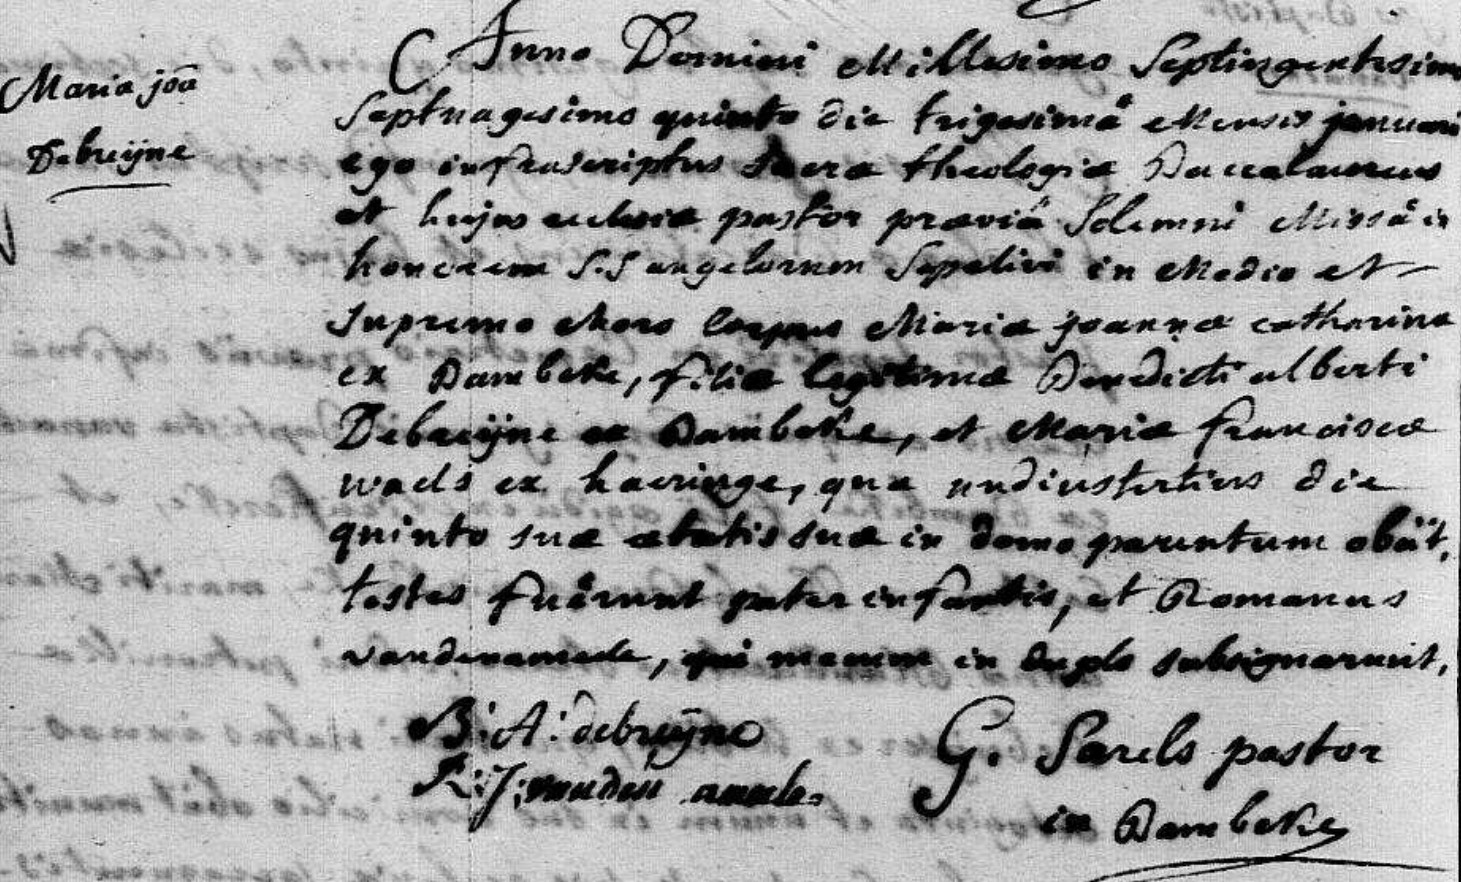 Maria joã
Debreijne
Anno Domini Millesimo Septingentesimo
Septuagesimo quinto die trigesimâ Mensis januari
ego infrascriptus Sacræ theologiæ Baccalaureus
et hujus ecclesiæ pastor præviâ Solemni Missâ in
honorem S.S angelorum Sepelivi in Medio et
Supremo Choro Corpus Mariæ joannæ catharina
ex Bambeke, filiæ legitimæ Benedicti alberti
Debreijne ex Bambeke, et Mariæ franciscæ
waels ex haeringe, quæ nudiustertius die
quinto suæ ætatis suæ in domo parentum obiit,
testes fuêrunt pater infantis, et Romanus
vandenameele, qui mecum in duplo subsignarunt,
B: A: debreÿne
R: J: vanden ameele
G. Sarels pastor
in Bambeke